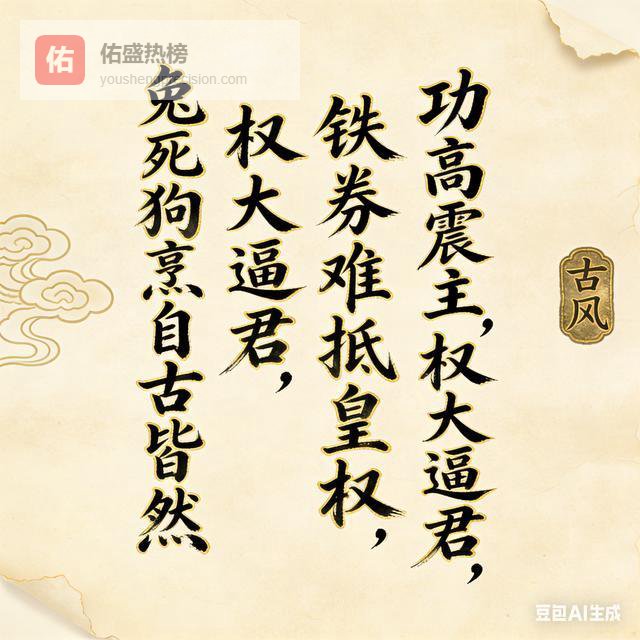 佑
佑盛热榜
youshengprecision.com
功高震主,权大逼君,
铁券难抵皇权,
权大逼君,
兔死狗烹自古皆然
古风
豆包AI生成